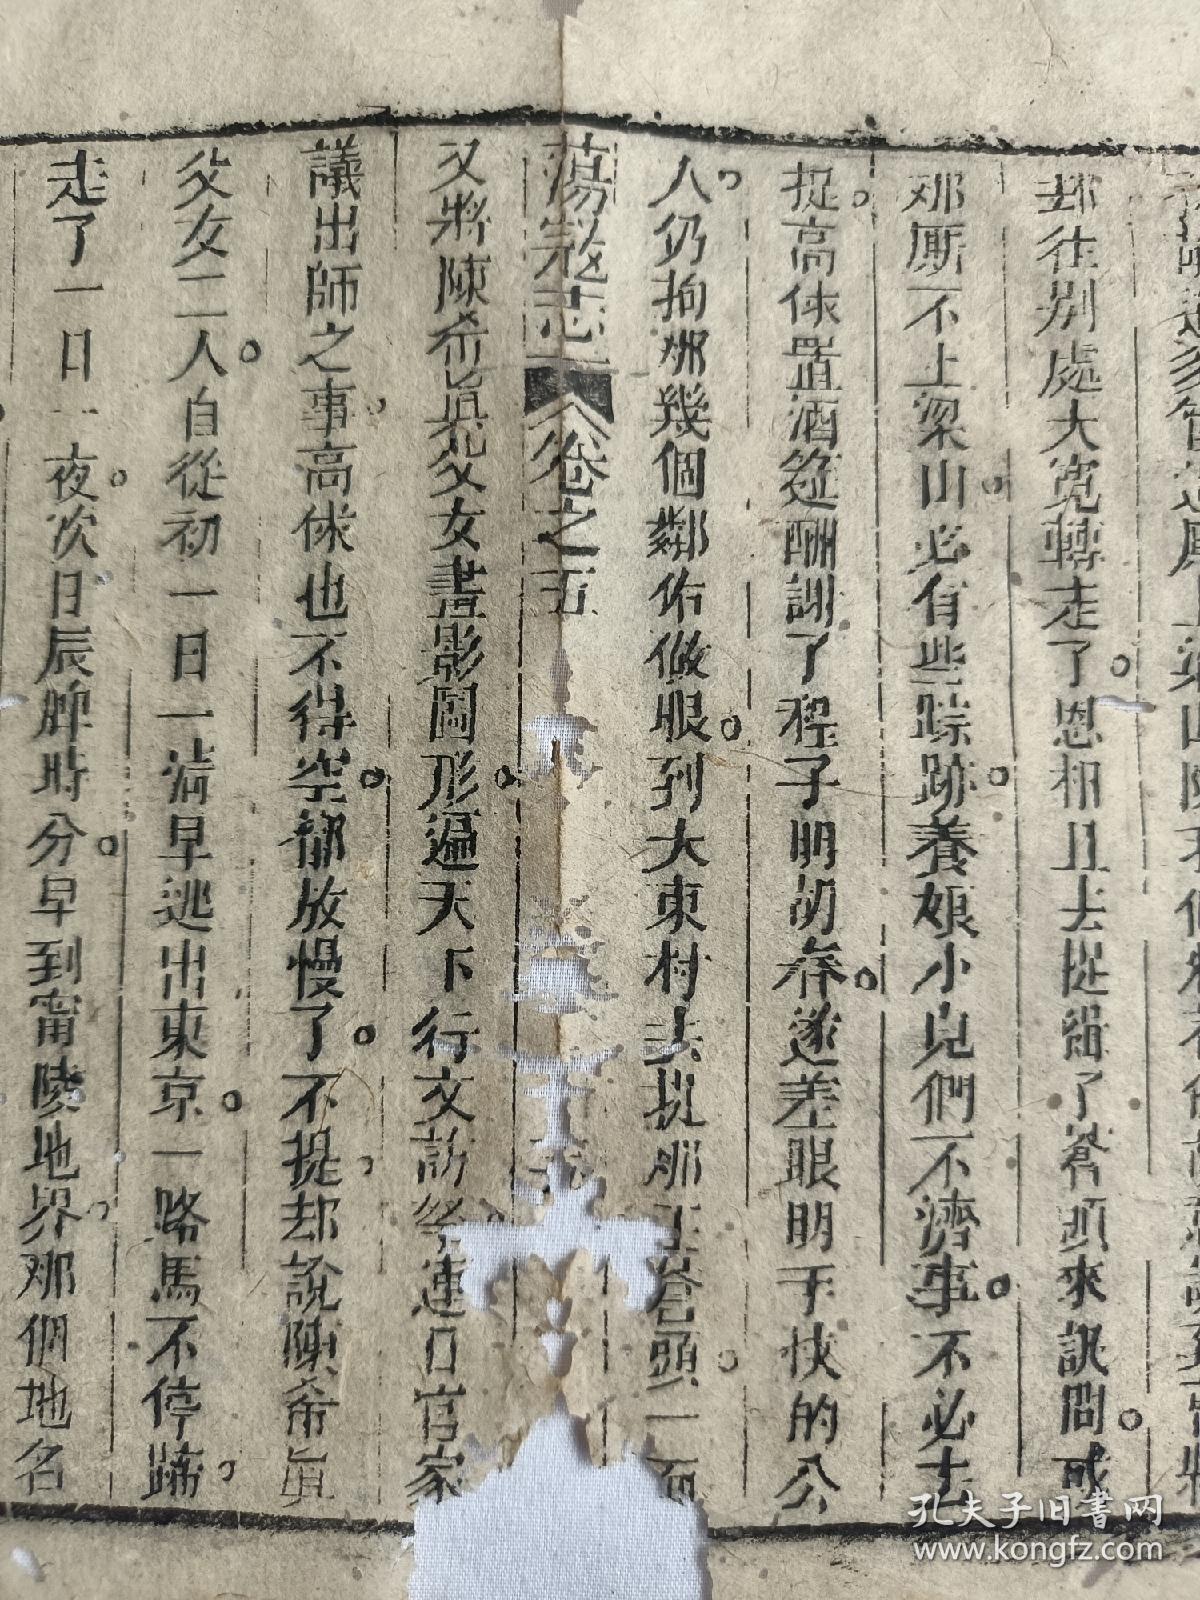 却往別處大寬轉走了恩相且去捉緝了蒼頭來訊問或
那厮不上梁山必有些踪跡養娘小兒們不濟事不必去
捉高俅置酒筵酬謝了程子明胡春遂差眼明手快的公
人仍拘那幾個鄰佑做眼到大東村去捉那王蒼頭一面
蕩寇志 卷之五
又將陳希眞父女畫影圖形遍天下行文訪拏連日官家
議出師之事高俅也不得空都放慢了不提却說陳希眞
父女二人自從初一日一淸早逃出東京一路馬不停蹄
走了一日一夜次日辰牌時分早到甯陵地界那個地名
孔夫子旧書网
www.kongfz.com